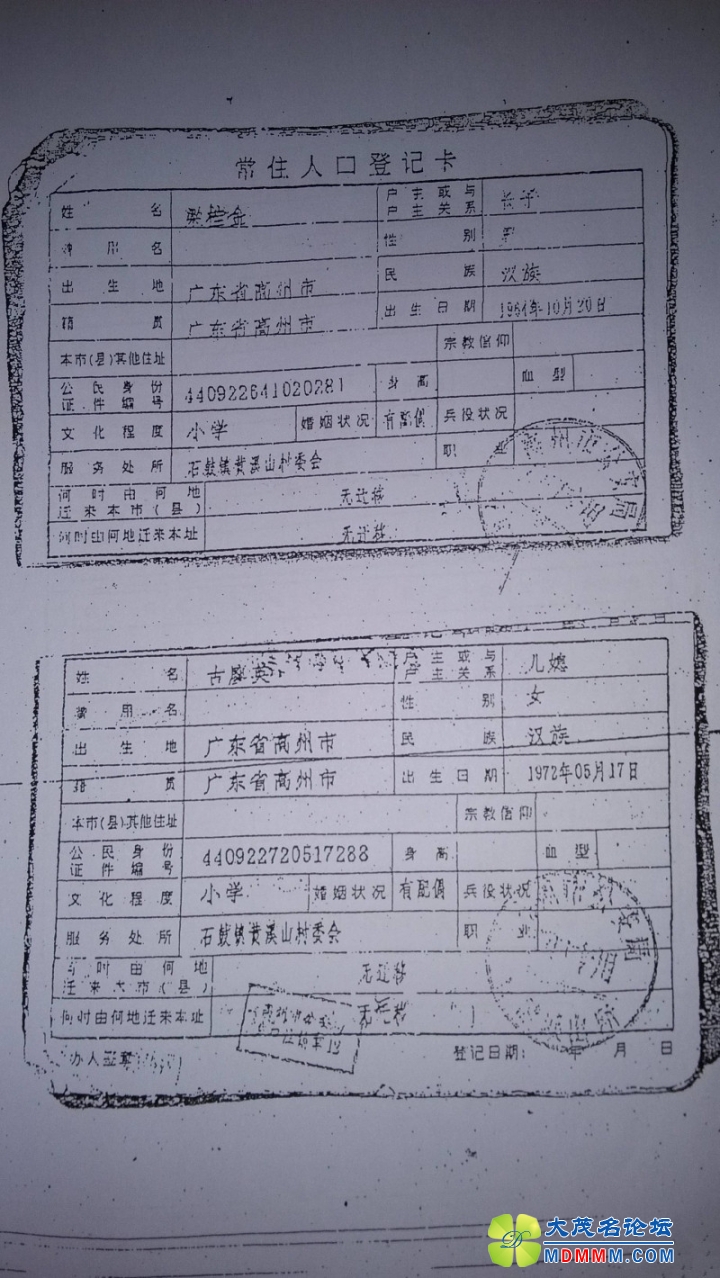 常住人口登记卡
姓名 户主或与户主关系 长子
曾用名 性别 男
出生地 广东省高州市 民族 汉族
籍贯 广东省高州市 出生日期 1964年10月20日
本市(县)其他住址 宗教信仰
公民身份证件编号 440922641020281 身高 血型
文化程度 小学 婚姻状况 有配偶 兵役状况
服务处所 石鼓镇黄溪山村委会 职业
何时由何地迁来本市(县) 无迁移
何时由何地迁来本址 无迁移
州市公安局
姓名 古 英 户主或与户主关系 儿媳
曾用名 性别 女
出生地 广东省高州市 民族 汉族
籍贯 广东省高州市 出生日期 1972年05月17日
本市(县)其他住址 宗教信仰
公民身份证件编号 440922720517288 身高 血型
文化程度 小学 婚姻状况 有配偶 兵役状况
服务处所 石鼓镇黄溪山村委会 职业
何时由何地迁来本市(县) 无迁移
何时由何地迁来本址 无迁移
办人签章 登记日期: 年 月 日
大茂名论坛
MDMMM.COM